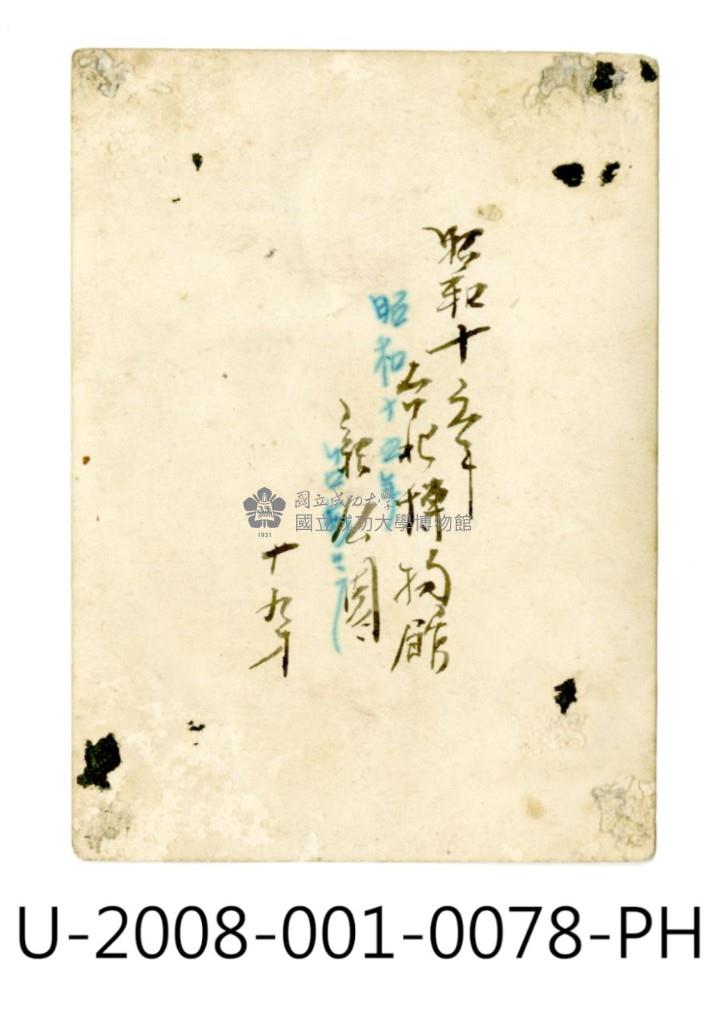 昭和十五年
台北博物館
新公園
十九才
昭和十五年
國立成功大學
國立成功大學博物館
1931
U-2008-001-0078-PH